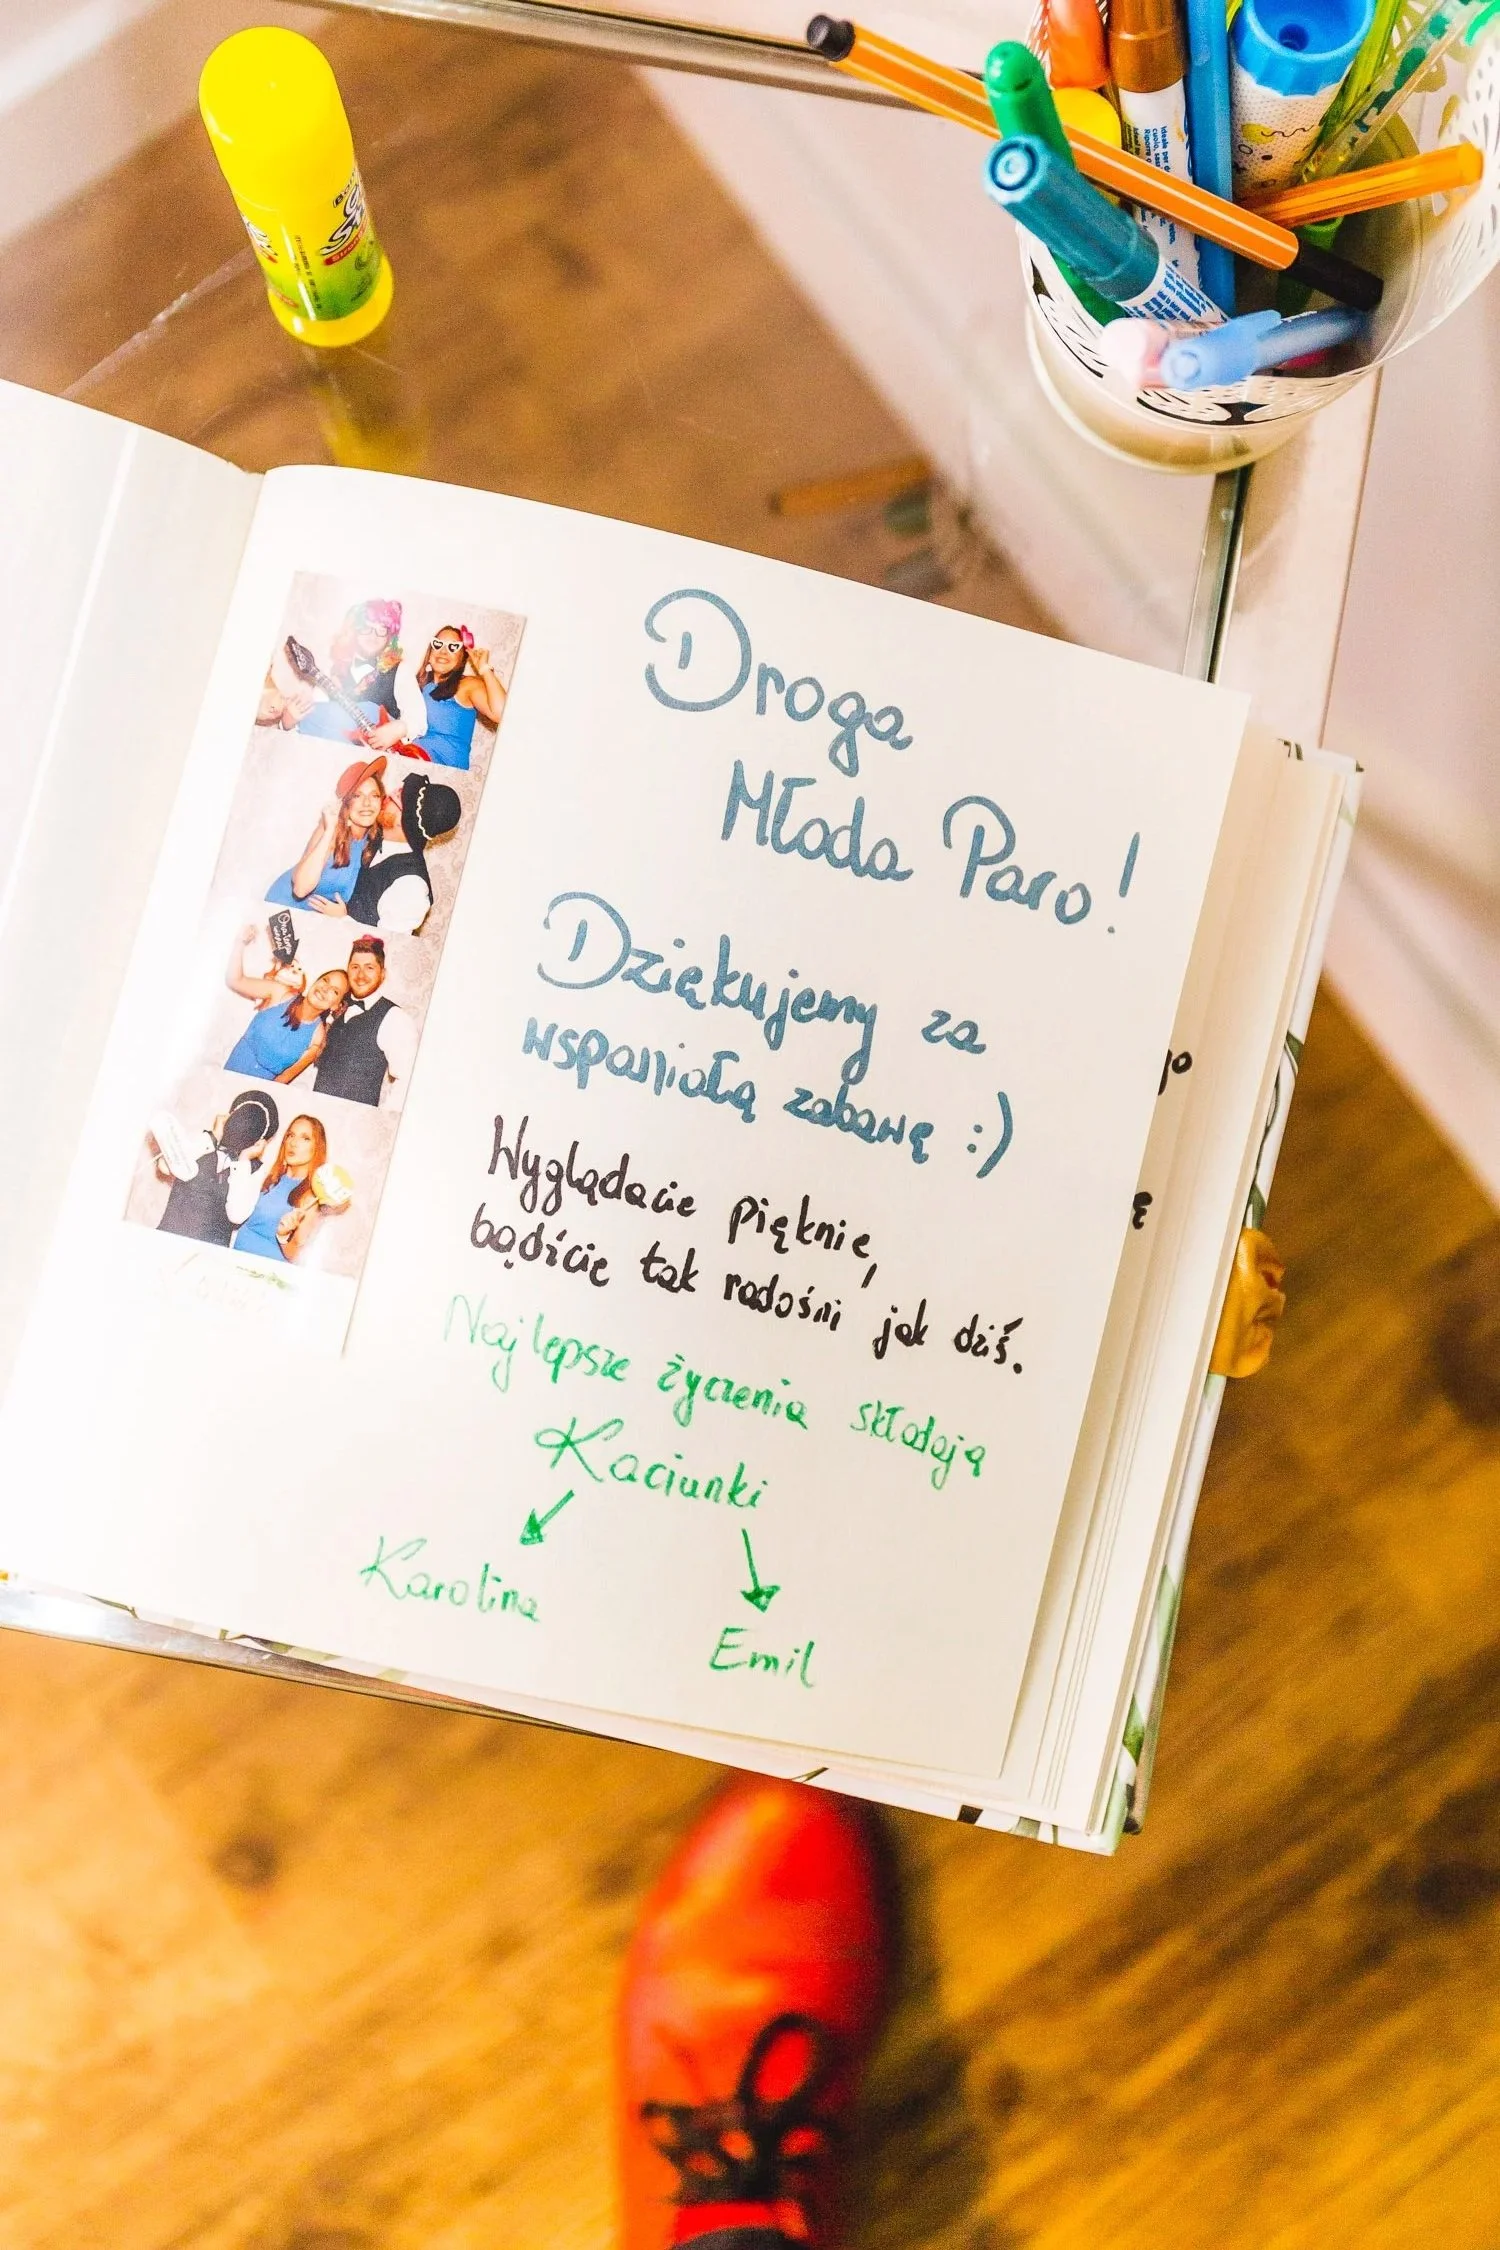 Droga
Młoda Paro!
Dziękujemy za
wspaniałą zabawę :)
Wyglądacie pięknie,
bądźcie tak radośni jak dziś.
Najlepsze życzenia składają
Kaciunki
Karolina
Emil